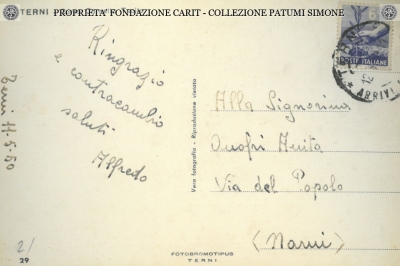 PROPRIETA' FONDAZIONE CARIT - COLLEZIONE PATUMI SIMONE
TERNI
Ringrazio
e contraccambio
saluti
Alfredo
Terni 11-5-50
Vera fotografia - Riproduzione vietata
POSTE ITALIANE
ARRIVI
Alla Signorina
Onofri Anita
Via del Popolo
(Narni)
2/
29
FOTOBROMOTIPUS
TERNI